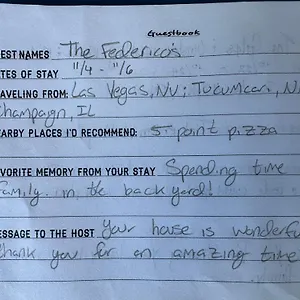 Guestbook
EST NAMES The Federico's
TES OF STAY 11/4 - 11/6
AVELING FROM: Las Vegas, NV; Tucumcari, N
Champaign, IL
ARBY PLACES I'D RECOMMEND: 5 point pizza
AVORITE MEMORY FROM YOUR STAY Spending time
family in the back yard!
ESSAGE TO THE HOST Your house is wonderfu
thank you for an amazing time